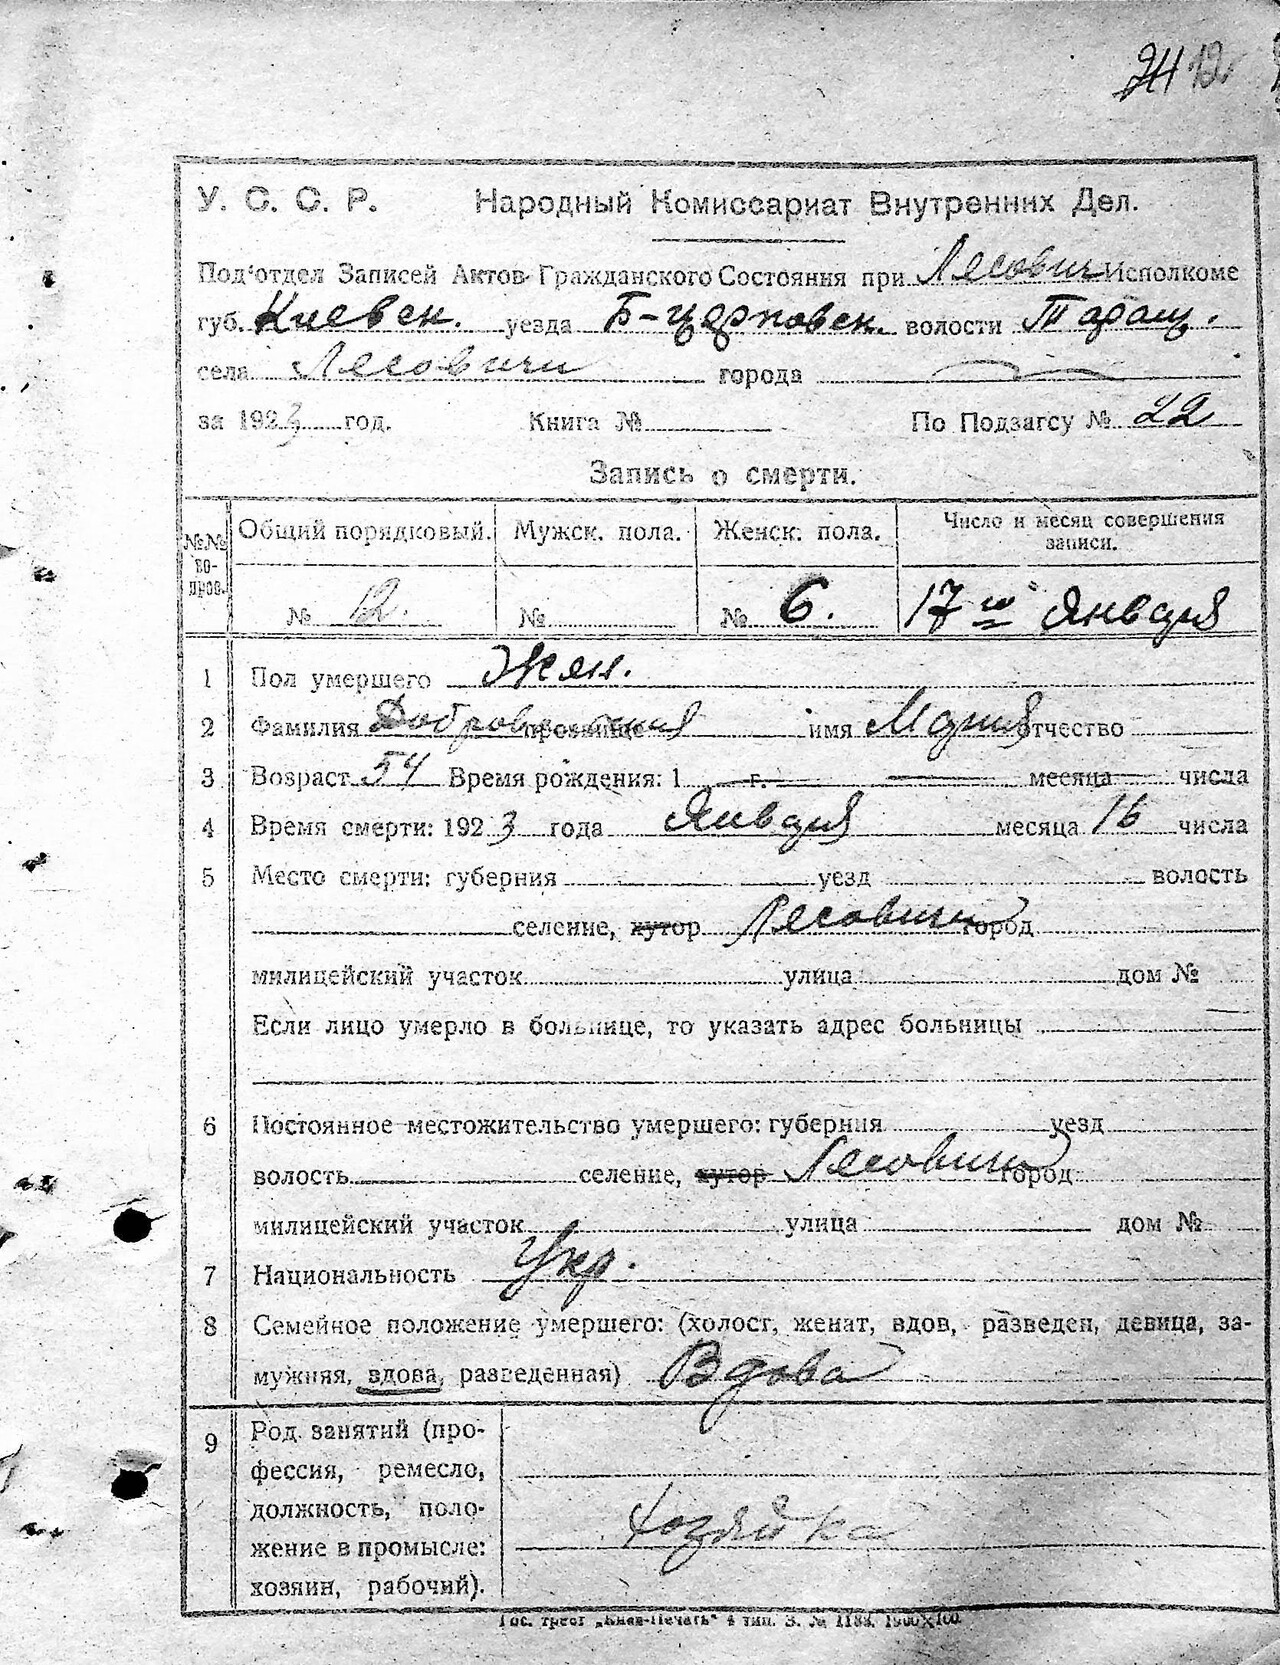 12
У. С. С. Р. Народный Комиссариат Внутренних Дел.
Под'отдел Записей Актов Гражданского Состояния при Лесович Исполкоме
губ. Киевск. уезда Б-церковск. волости Таращ.
села Лесовичи города
за 1923 год. Книга № По Подзагсу № 22
Запись о смерти.
№№ во-прос. Общий порядковый. Мужск. пола. Женск. пола. Число и месяц совершения записи.
№ 12. № № 6. 17го Января
1 Пол умершего Жен.
2 Фамилия Добровольская прозвище имя Мария отчество
3 Возраст 54 Время рождения: 1 г. месяца числа
4 Время смерти: 1923 года Января месяца 16 числа
5 Место смерти: губерния уезд волость
селение, хутор Лесовичи город
милицейский участок улица дом №
Если лицо умерло в больнице, то указать адрес больницы
6 Постоянное местожительство умершего: губерния уезд
волость селение, хутор Лесовичи город
милицейский участок улица дом №
7 Национальность Укр.
8 Семейное положение умершего: (холост, женат, вдов, разведен, девица, за-
мужняя, вдова, разведенная) Вдова
9 Род занятий (про-
фессия, ремесло,
должность, поло-
жение в промысле:
хозяин, рабочий).
хозяйка
Гос. трест „Киев-Печать" 4 тип. З. № 1188. 1900×100